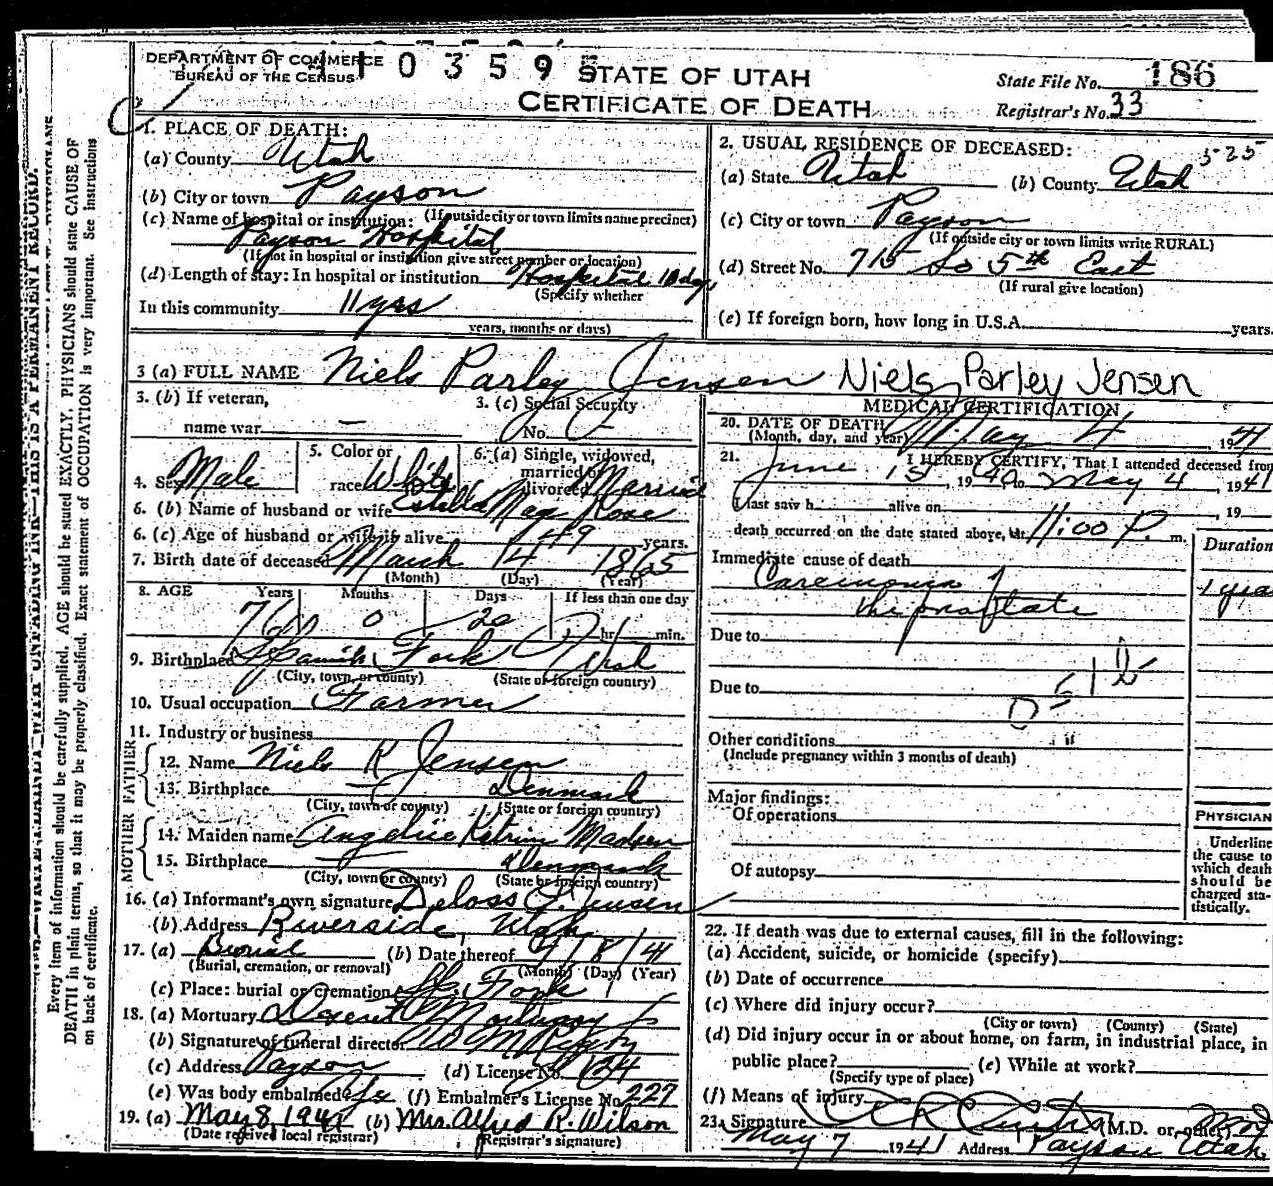 DEPARTMENT OF COMMERCE
BUREAU OF THE CENSUS
0 3 5 9
STATE OF UTAH
CERTIFICATE OF DEATH
State File No. 186
Registrar's No. 33
1. PLACE OF DEATH:
(a) County Utah
(b) City or town Payson
(If outside city or town limits name precinct)
(c) Name of hospital or institution:
Payson Hospital
(If not in hospital or institution give street number or location)
(d) Length of stay: In hospital or institution Hospital 10 dys
(Specify whether
In this community 11 yrs
years, months or days)
2. USUAL RESIDENCE OF DECEASED: 525
(a) State Utah (b) County Utah
(c) City or town Payson
(If outside city or town limits write RURAL)
(d) Street No. 715 So 5th East
(If rural give location)
(e) If foreign born, how long in U.S.A. years.
3 (a) FULL NAME Niels Parley Jensen Niels Parley Jensen
3. (b) If veteran,
name war —
3. (c) Social Security
No. —
4. Sex Male
5. Color or
race White
6. (a) Single, widowed,
married or
divorced Married
6. (b) Name of husband or wife Estella May Rose
6. (c) Age of husband or wife if alive 49 years.
7. Birth date of deceased March 14 1865
(Month) (Day) (Year)
8. AGE Years Months Days If less than one day
76 0 20 hr. min.
9. Birthplace Spanish Fork Utah
(City, town, or county) (State or foreign country)
10. Usual occupation Farmer
11. Industry or business
FATHER
12. Name Niels R Jensen
13. Birthplace — Denmark
(City, town or county) (State or foreign country)
MOTHER
14. Maiden name Katrin Madsen
15. Birthplace — Denmark
(City, town or county) (State or foreign country)
16. (a) Informant's own signature Deloss P. Jensen
(b) Address Riverside, Utah
17. (a) Burial (b) Date thereof 8 / 41
(Burial, cremation, or removal) (Month) (Day) (Year)
(c) Place: burial or cremation Sp. Fork
18. (a) Mortuary Deseret Mortuary
(b) Signature of funeral director
(c) Address Payson (d) License No. 134
(e) Was body embalmed? Yes (f) Embalmer's License No. 227
19. (a) May 8, 1941 (b) Mrs. Alfred R. Wilson
(Date received local registrar) (Registrar's signature)
MEDICAL CERTIFICATION
20. DATE OF DEATH
(Month, day, and year) May 4, 1941
21. I HEREBY CERTIFY, That I attended deceased from
June 1st, 1940, to May 4, 1941
I last saw h alive on , 19
death occurred on the date stated above, at 11:00 P. m.
Immediate cause of death
Duration
Carcinoma of 1 year
the prostate
Due to
Due to
Other conditions
(Include pregnancy within 3 months of death)
Major findings:
Of operations
Of autopsy
PHYSICIAN
Underline
the cause to
which death
should be
charged sta-
tistically.
22. If death was due to external causes, fill in the following:
(a) Accident, suicide, or homicide (specify)
(b) Date of occurrence
(c) Where did injury occur?
(City or town) (County) (State)
(d) Did injury occur in or about home, on farm, in industrial place, in
public place? (e) While at work?
(Specify type of place)
(f) Means of injury
23. Signature (M.D. or other)
May 7 1941 Address Payson Utah
Every item of information should be carefully supplied. AGE should be stated EXACTLY. PHYSICIANS should state CAUSE OF
DEATH in plain terms, so that it may be properly classified. Exact statement of OCCUPATION is very important. See instructions
on back of certificate.